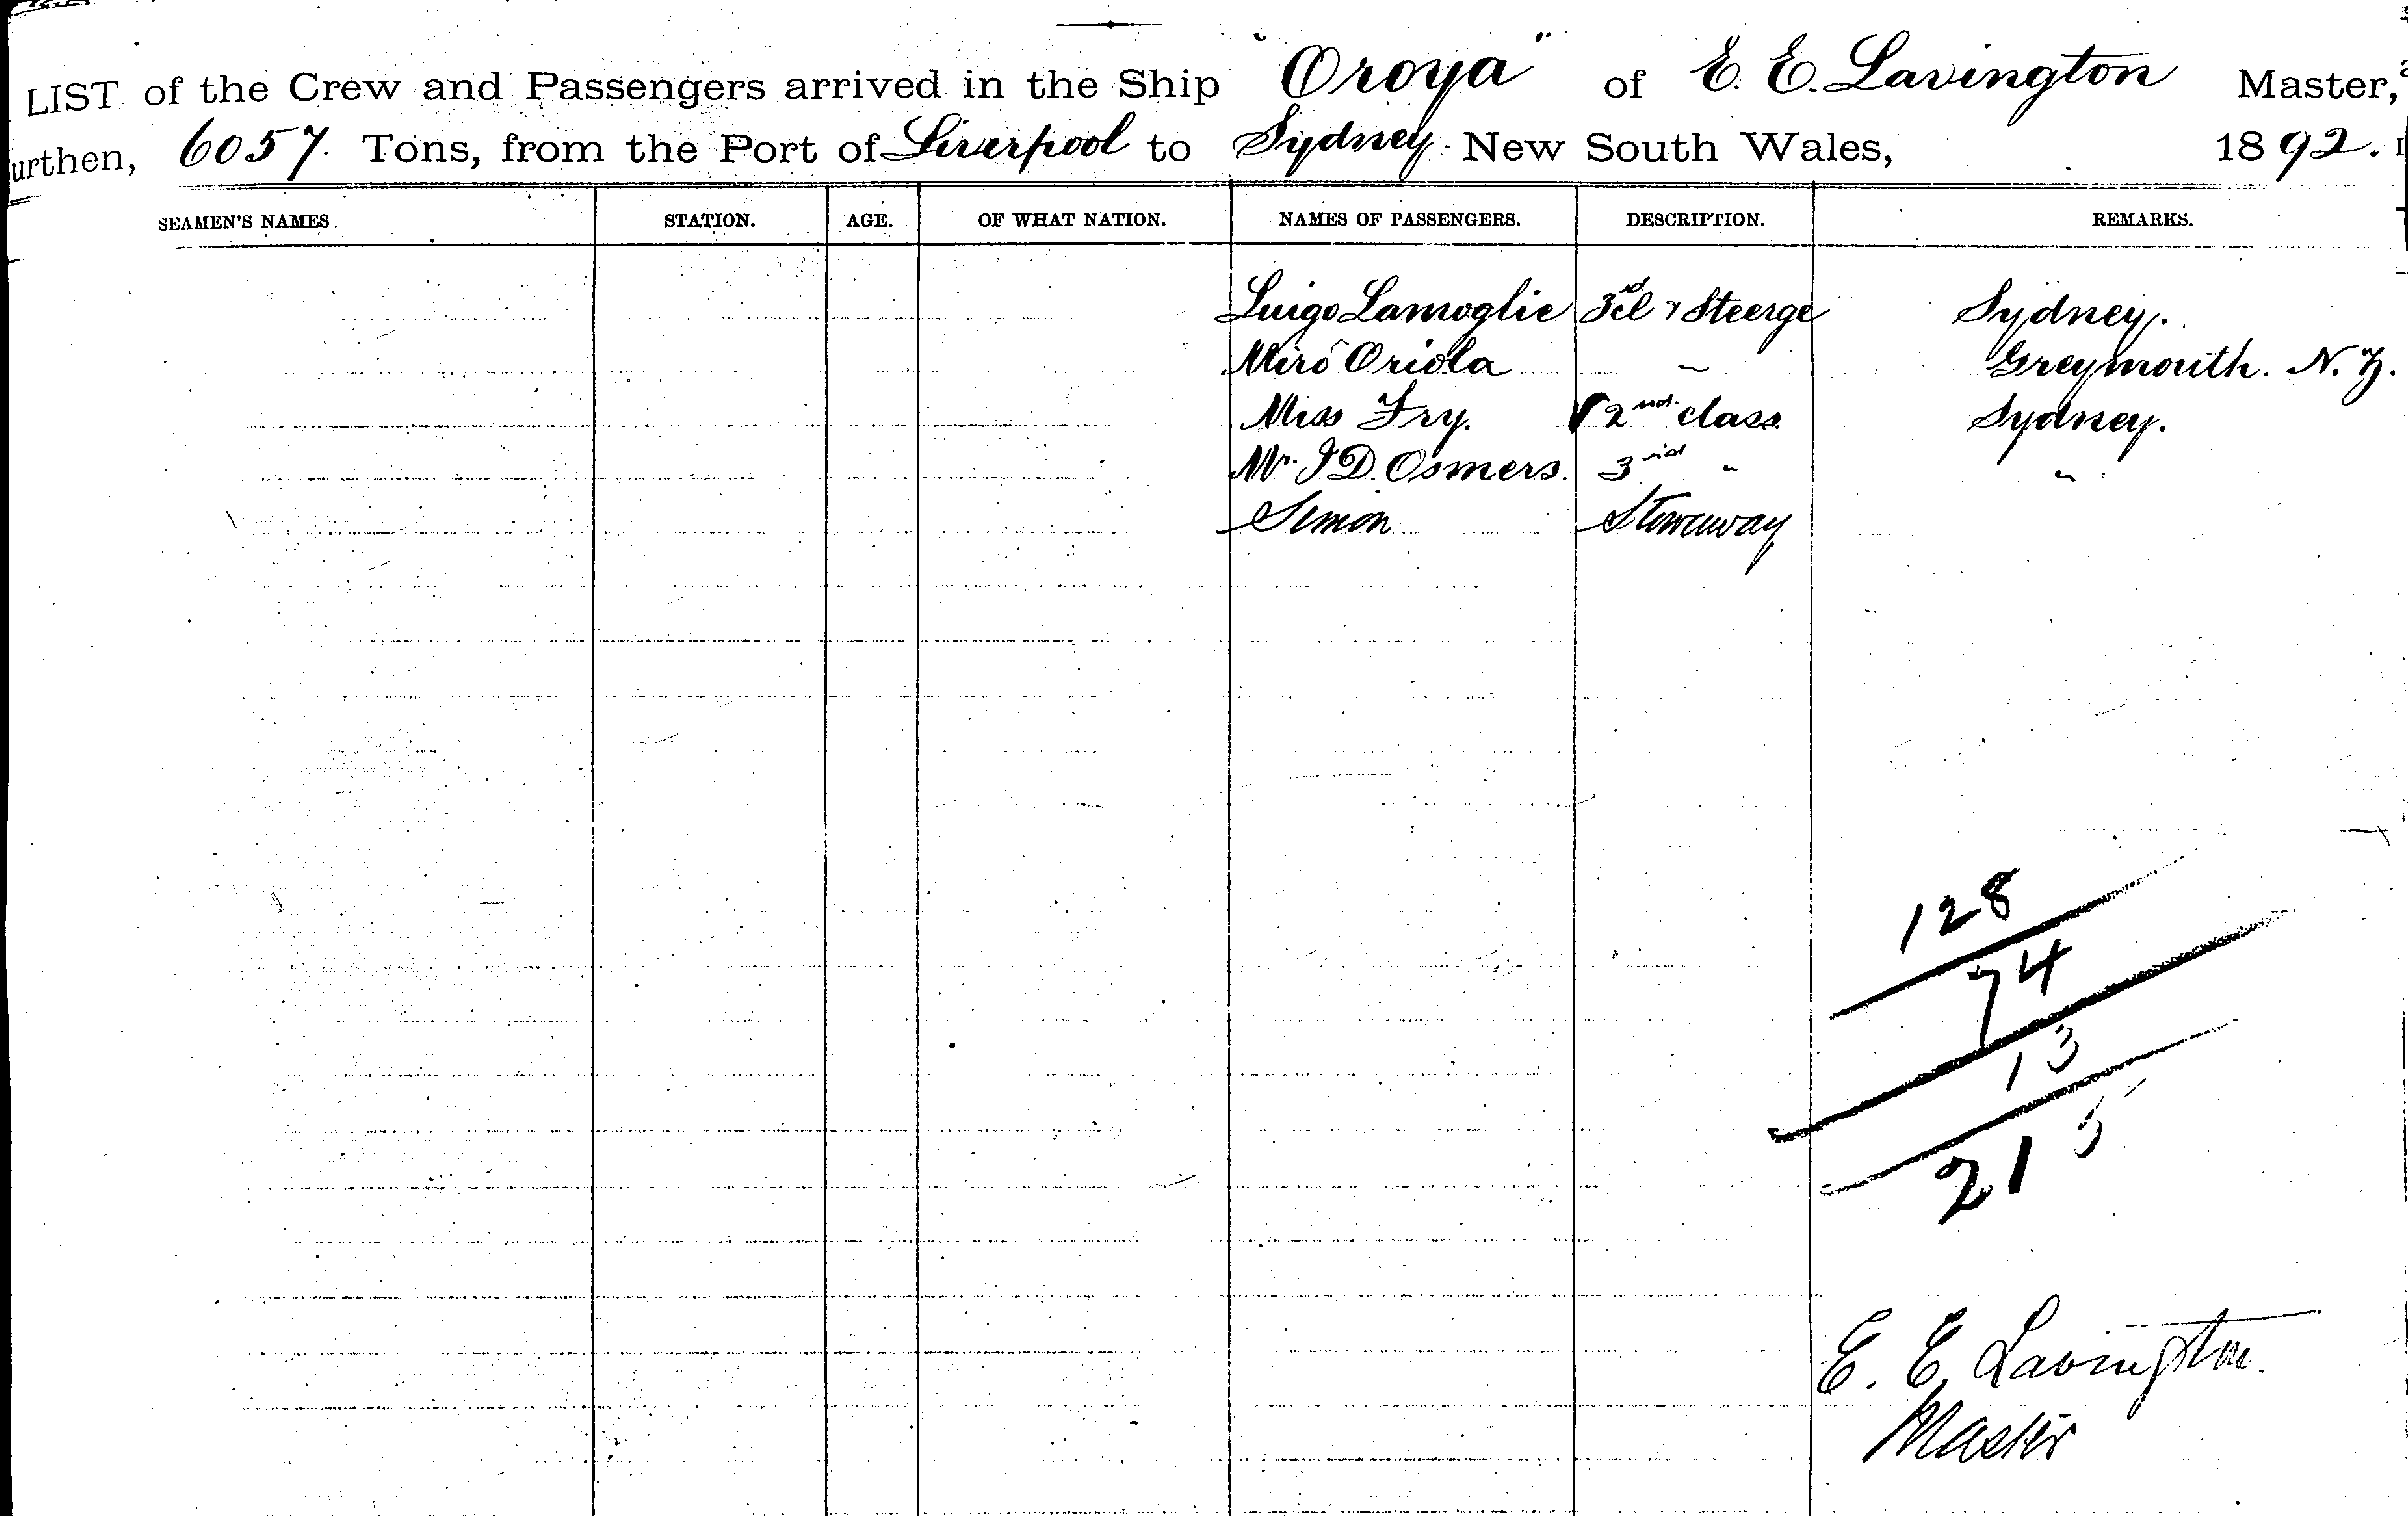 LIST of the Crew and Passengers arrived in the Ship "Oroya" of E. E. Lavington Master,
urthen, 6057 Tons, from the Port of Liverpool to Sydney New South Wales, 1892.
SEAMEN'S NAMES. STATION. AGE. OF WHAT NATION. NAMES OF PASSENGERS. DESCRIPTION. REMARKS.
Luigo Lamoglie 3rd cl & Steerge Sydney.
Miro Oriola " Greymouth. N. Z.
Miss Fry. 2nd class Sydney.
Mr J D. Osmers. 3rd " "
Simon Stowaway
128
74
13
215
E. E. Lavington.
Master